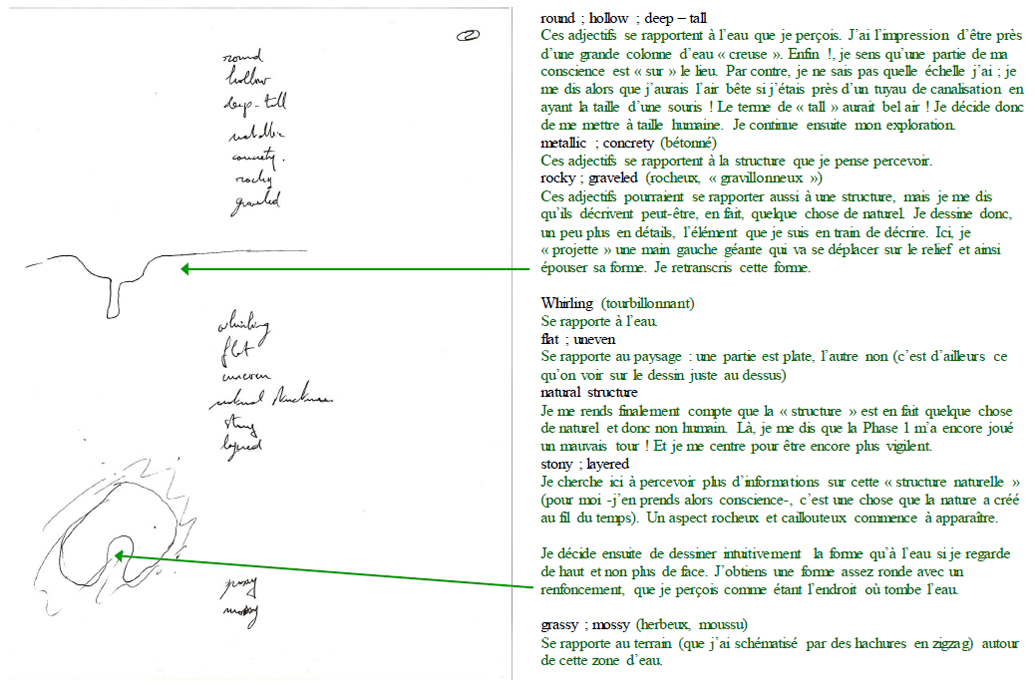 2
round
hollow
deep-tall
metallic
concrety.
rocky
graveled
whirling
flat
uneven
natural structure
stony
layered
grassy
mossy
round ; hollow ; deep – tall
Ces adjectifs se rapportent à l'eau que je perçois. J'ai l'impression d'être près
d'une grande colonne d'eau « creuse ». Enfin !, je sens qu'une partie de ma
conscience est « sur » le lieu. Par contre, je ne sais pas quelle échelle j'ai ; je
me dis alors que j'aurais l'air bête si j'étais près d'un tuyau de canalisation en
ayant la taille d'une souris ! Le terme de « tall » aurait bel air ! Je décide donc
de me mettre à taille humaine. Je continue ensuite mon exploration.
metallic ; concrety (bétonné)
Ces adjectifs se rapportent à la structure que je pense percevoir.
rocky ; graveled (rocheux, « gravillonneux »)
Ces adjectifs pourraient se rapporter aussi à une structure, mais je me dis
qu'ils décrivent peut-être, en fait, quelque chose de naturel. Je dessine donc,
un peu plus en détails, l'élément que je suis en train de décrire. Ici, je
« projette » une main gauche géante qui va se déplacer sur le relief et ainsi
épouser sa forme. Je retranscris cette forme.
Whirling (tourbillonnant)
Se rapporte à l'eau.
flat ; uneven
Se rapporte au paysage : une partie est plate, l'autre non (c'est d'ailleurs ce
qu'on voir sur le dessin juste au dessus)
natural structure
Je me rends finalement compte que la « structure » est en fait quelque chose
de naturel et donc non humain. Là, je me dis que la Phase 1 m'a encore joué
un mauvais tour ! Et je me centre pour être encore plus vigilent.
stony ; layered
Je cherche ici à percevoir plus d'informations sur cette « structure naturelle »
(pour moi -j'en prends alors conscience-, c'est une chose que la nature a créé
au fil du temps). Un aspect rocheux et caillouteux commence à apparaître.
Je décide ensuite de dessiner intuitivement la forme qu'à l'eau si je regarde
de haut et non plus de face. J'obtiens une forme assez ronde avec un
renfoncement, que je perçois comme étant l'endroit où tombe l'eau.
grassy ; mossy (herbeux, moussu)
Se rapporte au terrain (que j'ai schématisé par des hachures en zigzag) autour
de cette zone d'eau.